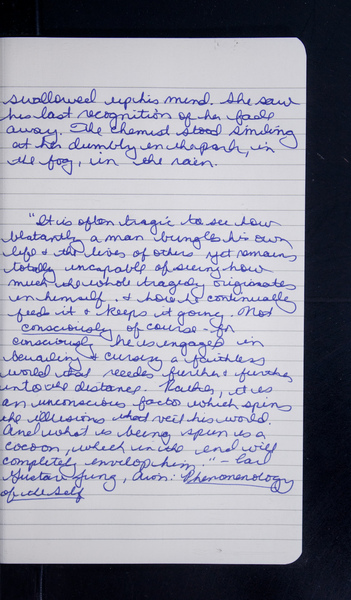 swallowed up his mind. She saw
his last recognition of her fade
away. The chemist stood smiling
at her dumbly in the park, in
the fog, in the rain.
"It is often tragic to see how
blatantly a man bungles his own
life & the lives of others yet remains
totally uncapable of seeing how
much the whole tragedy originates
in himself, & how he continually
feeds it & keeps it going. Not
consciously of course - for
consciously he is engaged in
bewailing & cursing a faithless
world that recedes further & further
into the distance. Rather, it is
an unconscious factor which spins
the illusions that veil his world.
And what is being spun is a
cocoon, which in the end will
completely envelop him." - Carl
Gustav Jung, Aion: Phenomenology
of the Self